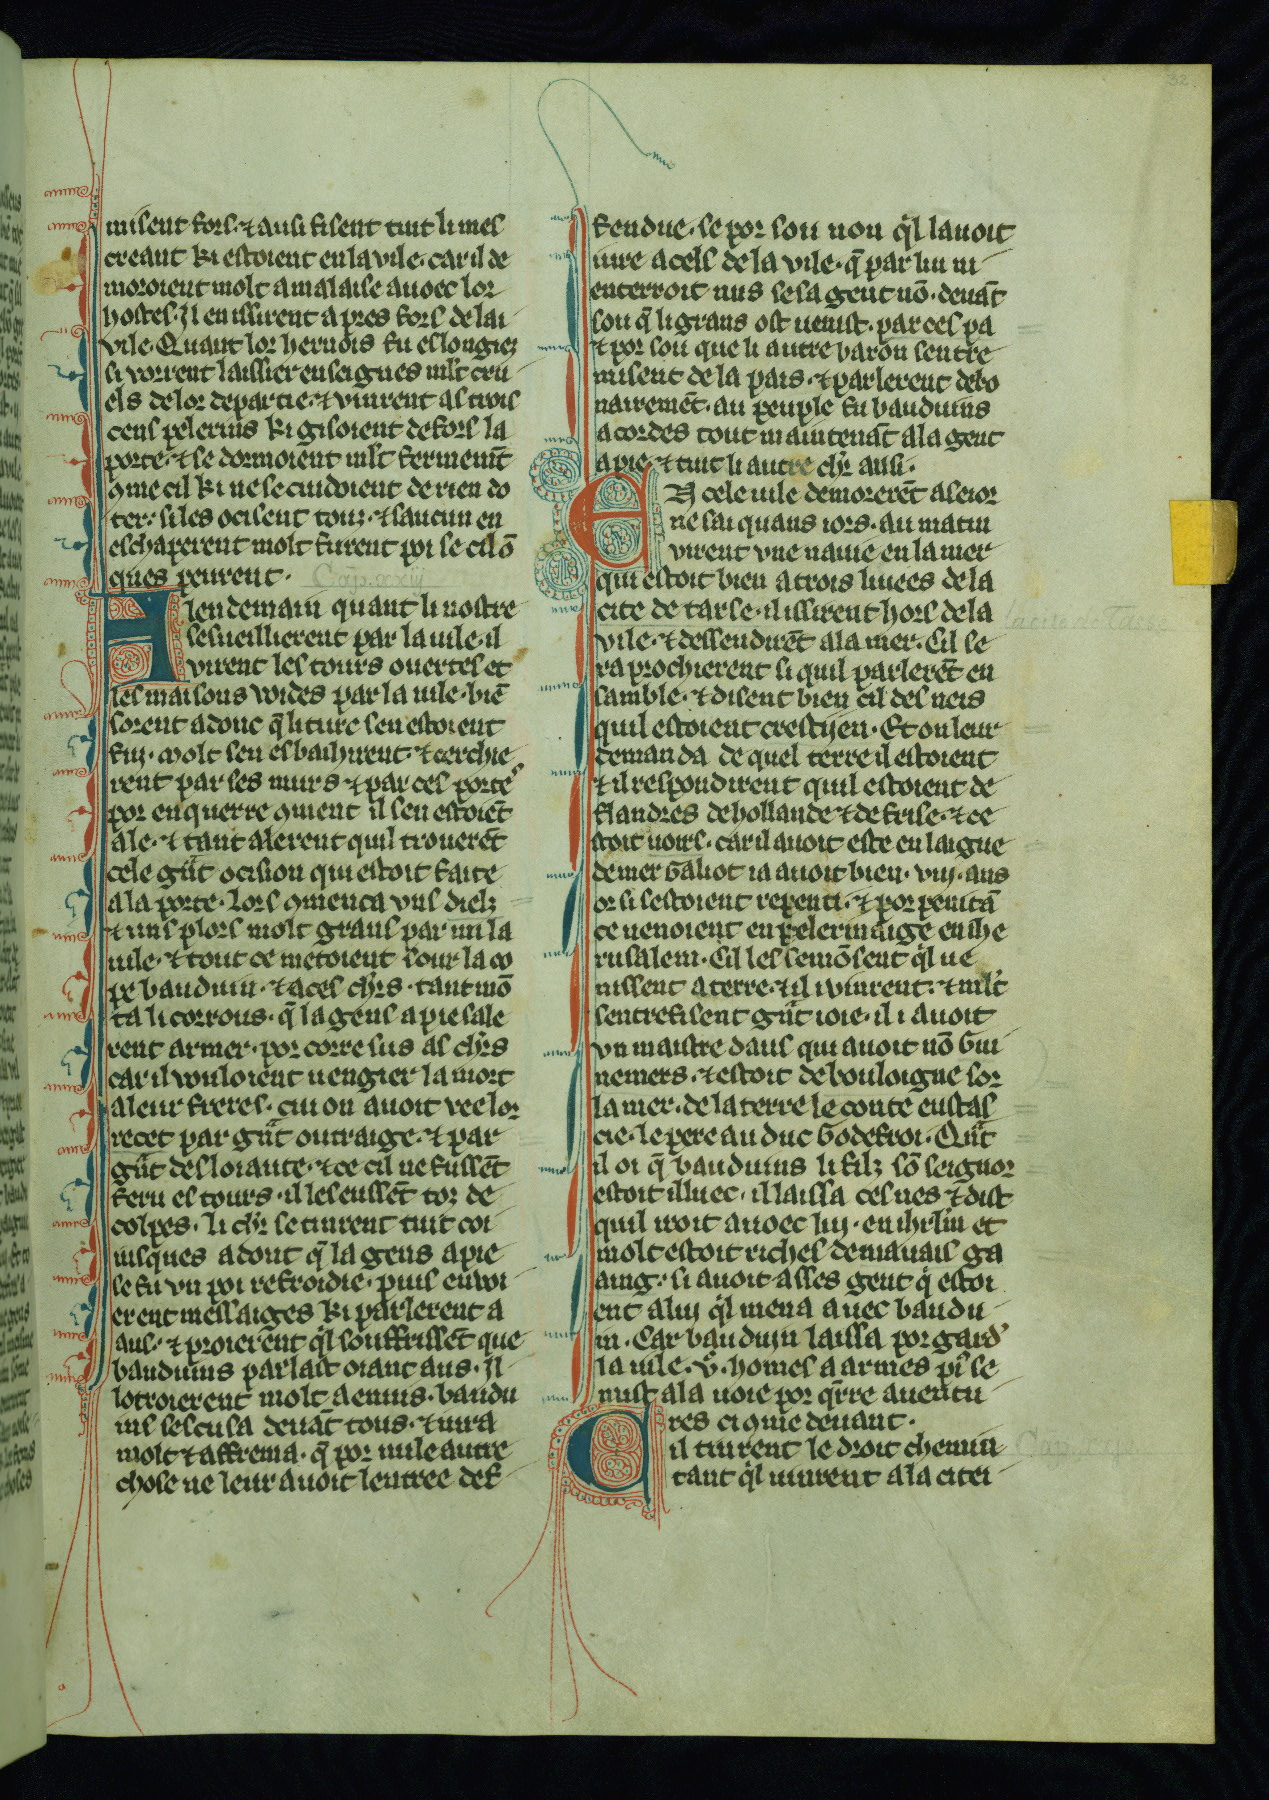 32
misent fors. ⁊ ausi fisent tuit li mes
creant ki estoient en la vile. car il de
moroient molt a malaise auoec lor
hostes. Il en issirent apres fors de lai
vile. Quant lor heruois fu eslongiez
si vorrent laissier enseignes mlt cru
els de lor departie. ⁊ vinrent as trois
cens pelerins ki gisoient defors la
porte. ⁊ se dormoient mlt fermemt̄
ꝯme cil ki ne se cuidoient de rien do
ter. si les ocisent touz. ⁊ saucun en
eschaperent molt furent poi se cil ō
ques peurent. Cap. xxiij
A lendemain quant li nostre
sesueillierent par la uile. il
virent les tours ouertes et
les maisons wides par la uile. biē
sorent adonc q̄ li turc sen estoient
fui. molt sen esbaihirent. ⁊ cerchie
rent par les murs ⁊ par ces portes
por enquerre ꝯment il sen estoiēt
ale. ⁊ tant alerent quil trouerēt
cele gūt ocision qui estoit faite
a la porte. Lors ꝯmenca vns dielz
⁊ uns plors molt grans par mi la
uile. ⁊ tout ce metoient sour la co
pe bauduin. ⁊ a ces chr̄s. tant mō
ta li corrous. q̄ la gens a pie sale
rent armer. por corre sus as chr̄s
car il vouloient uengier la mort
a leur freres. cui on auoit vee lor
recet par gūt outraige. ⁊ par
gūt desloiaute. ⁊ ce cil ne fussēt
feru es tours. il les eussēt toz de
colpes. li chr̄ se tinrent tuit coi
iusques adont q̄ la gens a pie
se fu vn poi refroidie. puis enuoi
erent messaiges ki parlerent a
aus. ⁊ proierent ql̄ souffrissēt que
bauduins parlast oiant aus. Il
lotroierent molt a enuis. baudu
ins sescusa deuāt tous. ⁊ iura
molt ⁊ afferma. q̄ por nule autre
chose ne leur auoit lentree def
fendue. se por sou non ql̄ lauoit
iure a cels de la vile. q̄ par lui ni
enterroit nus se sa gent nō. deuāt
sou q̄ li grans ost uenist. par ces pa
⁊ por sou que li autre baron sentre
misent de la pais. ⁊ parlerent debo
nairemēt. au peuple fu bauduins
acordes tout maintenāt a la gent
a pie. ⁊ tuit li autre chr̄ ausi.
En cele uile demorerēt a seior
ne sai quans iors. au matin
virent vne nauie en la mer
qui estoit bien a trois liuees de la
cite de tarse. il issirent hors de la
vile. ⁊ dessendirēt a la mer. Cil se
raprochierent si quil parlerēt en
samble. ⁊ disent bien cil des neis
quil estoient crestijen. Et on leur
demanda de quel terre il estoient
⁊ il respondirent quil estoient de
flandres de hollande ⁊ de frise. ⁊ ce
stoit uoirs. car il auoit este en laigue
de mer Galiot ia auoit bien. viij. ans
or si sestoient repenti. ⁊ por penitā
ce uenoient en pelerinaige en ihe
rusalem. Cil les semōsent ql̄ ue
nissent a terre. ⁊ il i vinrent. ⁊ mlt
sentrefisent gūt ioie. il i auoit
vn maistre daus qui auoit nō Gui
nemers. ⁊ estoit de bouloigne sor
la mer. de la terre le conte eustas
cie. le pere au duc Godefroi. Qūt
il oi q̄ bauduins li filz sō seignor
estoit illuec. il laissa ces nes ⁊ dist
quil iroit auoec lui. en ihrl̄m et
molt estoit riches de mauais ga
aing. si auoit asses gent q̄ estoi
ent a lui ql̄ mena auec baudu
in. Car bauduin laissa por gard'
la uile. v̊. homes a armes pi̇s se
mist a la uoie por qr̄re auentu
res ci ꝯme deuant.
Cil tinrent le droit chemin
tant ql̄ uinrent a la citei
la cite de Tarse